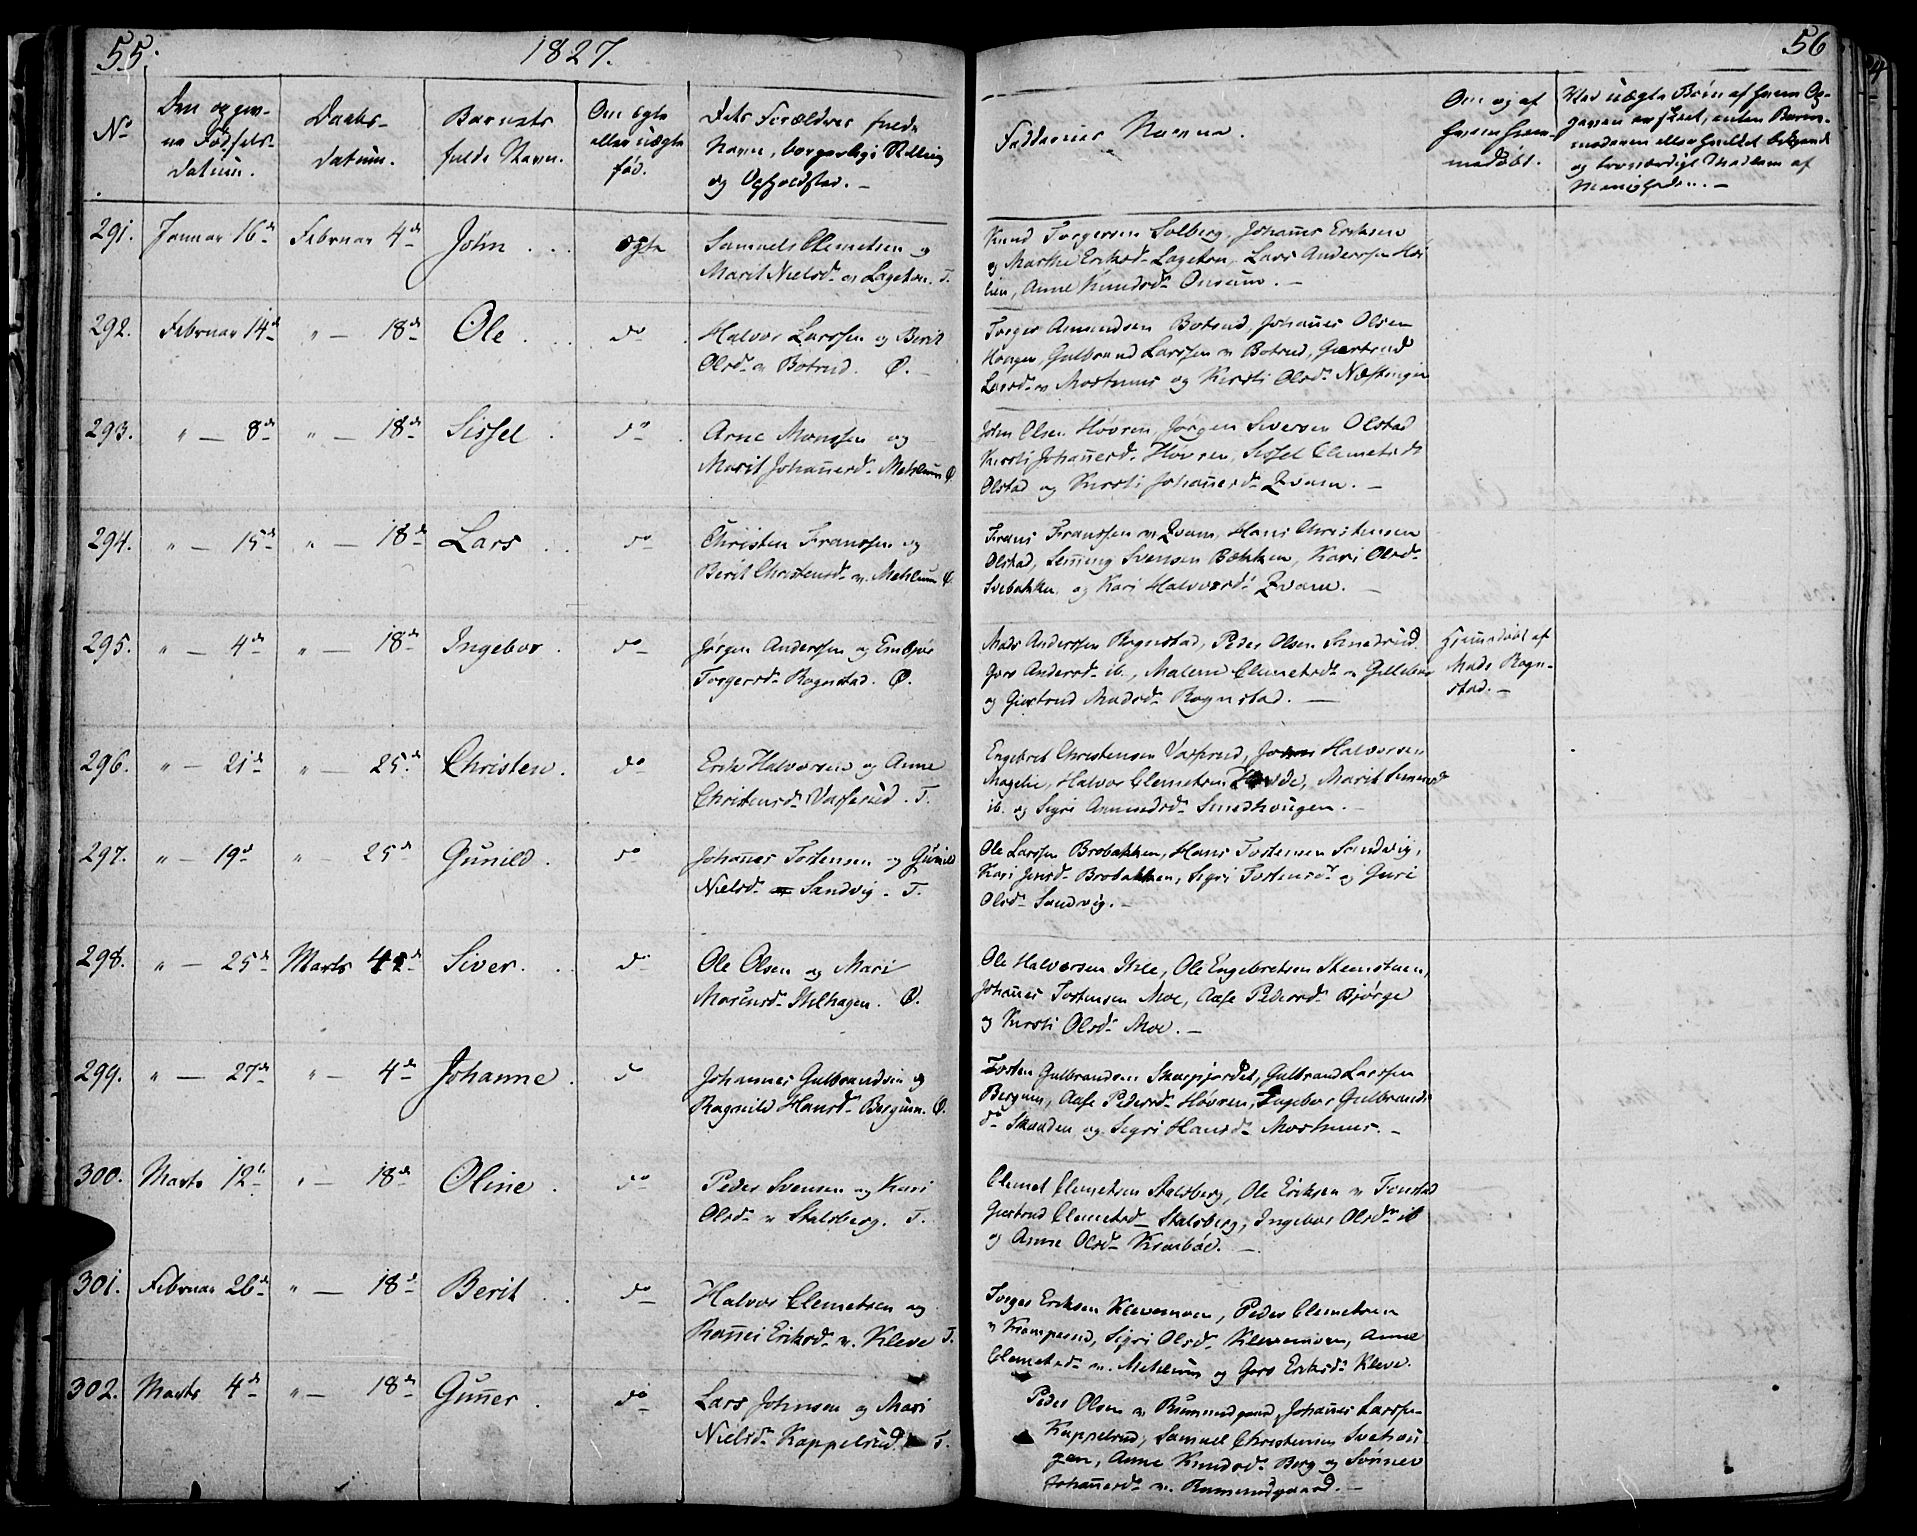 55. 1827. 56
No
Den og gen-
ne Fødsels-
datum.
Daabs-
datum.
Barnets
fulde Navn.
Om ægte
eller uægte
fød.
Dets Forældres fulde
Navn, borgerlige Stilling
og Opholdsted. —
Faddernes Navne.
Om og af
hvem hjem-
medøbt.
291. Januar 16de Februar 4de John . . ægte
Samuel Clemetsen og
Marit Nielsdr. Lageton. T.
Knud Torgersen Solberg, Johannes Eriksen
og Marthe Eriksdr. Lageton, Lars Anderssen Hør-
lien, Anne Knudsdr. Onsum. —
292. Februar 14de " — 18de Ole . . do
Halvor Larssen og Berit
Olsdr. Botrud. Ø. —
Torger Amundsen Botrud, Johannes Olsen
Haagen, Gulbrand Larssen Botrud, Giertrud
Larsdr. Moshuus og Kersti Olsdr.
293. " — 8de " — 18de Sissel . do
Arne Monssen og
Marit Johannesdr. Mehlum Ø.
John Olsen Høvren, Jørgen Siversen Olstad
Kersti Johannesdr. Høvren, Sissel Clemetsdr
Olstad og Kersti Johannesdr. Qvam. —
294. " — 15de " — 18de Lars . . do
Christen Franssen og
Berit Christensdr. Mehlum Ø.
Frans Franssen Qvam, Hans Christensen
Olstad, Semming Svensen Bækken, Kari Olsdr.
Svebakken og Kari Halvorsdr. Qvam. —
295. " — 4de " — 18de Ingebor . do
Jørgen Anderssen og Embjør
Torgersdr. Rognstad. Ø.
Mads Anderssen Rognstad, Peder Olsen Smedrud
Goro Andersdr. ib., Malene Clemetsdr.
og Giertrud Madsdr. Rognstad. —
Hjemmedøbt af
Mads Rogn-
stad. —
296. " — 21de " — 25de Christen . do
Erik Halvorsen og Anne
Christensdr. Vasrud. T.
Engebret Christensen Vasrud, Halvorsen
Magelie, Halvor Clemetsen, Marit
ib. og Sigri Amundsdr. Smedhougen. —
297. " — 19de " — 25de Gunild . do
Johannes Tostensen og Gunild
Nielsdr. Sandvig. T.
Ole Larssen Brobakken, Hans Tostensen Sandvig,
Kari Jensdr. Brobakken, Sigri Tostensdr. og Guri
Olsdr. Sandvig. —
298. " — 25de Marts 4de Siver . . do
Ole Olsen og Mari
. Ø.
Ole Halvorsen , Ole Engebretsen Steenstuen,
Johannes Tostensen Moe, Aase Pedersdr. Bjørge
og Kersti Olsdr. Moe. —
299. " — 27de " — 4de Johanne . do
Johannes Gulbrandsen og
Ragnild Hansdr. Bergum. Ø.
Tosten Gulbrandsen Skarpjordet, Gulbrand Larssen
Bergum, Aase Pedersdr. Høvren, Ingebor Gulbrands-
dr. Skauden og Sigri Hansdr. Moshuus. —
300. Marts 12te " — 18de Oline . do
Peder Svensen og Kari
Olsdr. Stalsberg. T.
Clemet Clemetsen Stalsberg, Ole Eriksen Fonstad
Giertrud Clemetsdr. Stalsberg, Ingebor Olsdr. ib
og Anne Olsdr. Kraabøl. —
301. Februar 26de " — 18de Berit . . do
Halvor Clemetsen og
Rannei Eriksdr. Kleve T.
Torger Eriksen Klevemoen, Peder Clemetsen
Kramperud, Sigri Olsdr. Klevemoen, Anne
Clemetsdr. Mehlum og Goro Eriksdr. Kleve.
302. Marts 4de " — 18de Gunner . do
Lars Johnsen og Mari
Nielsdr. Kappelrud. T.
Peder Olsen Rummudgaard, Johannes Larssen
Kappelrud, Samuel Christensen Svehou-
gen, Anne Knudsdr. Berg og Sønnev
Johannesdr. Rummudgaard. —